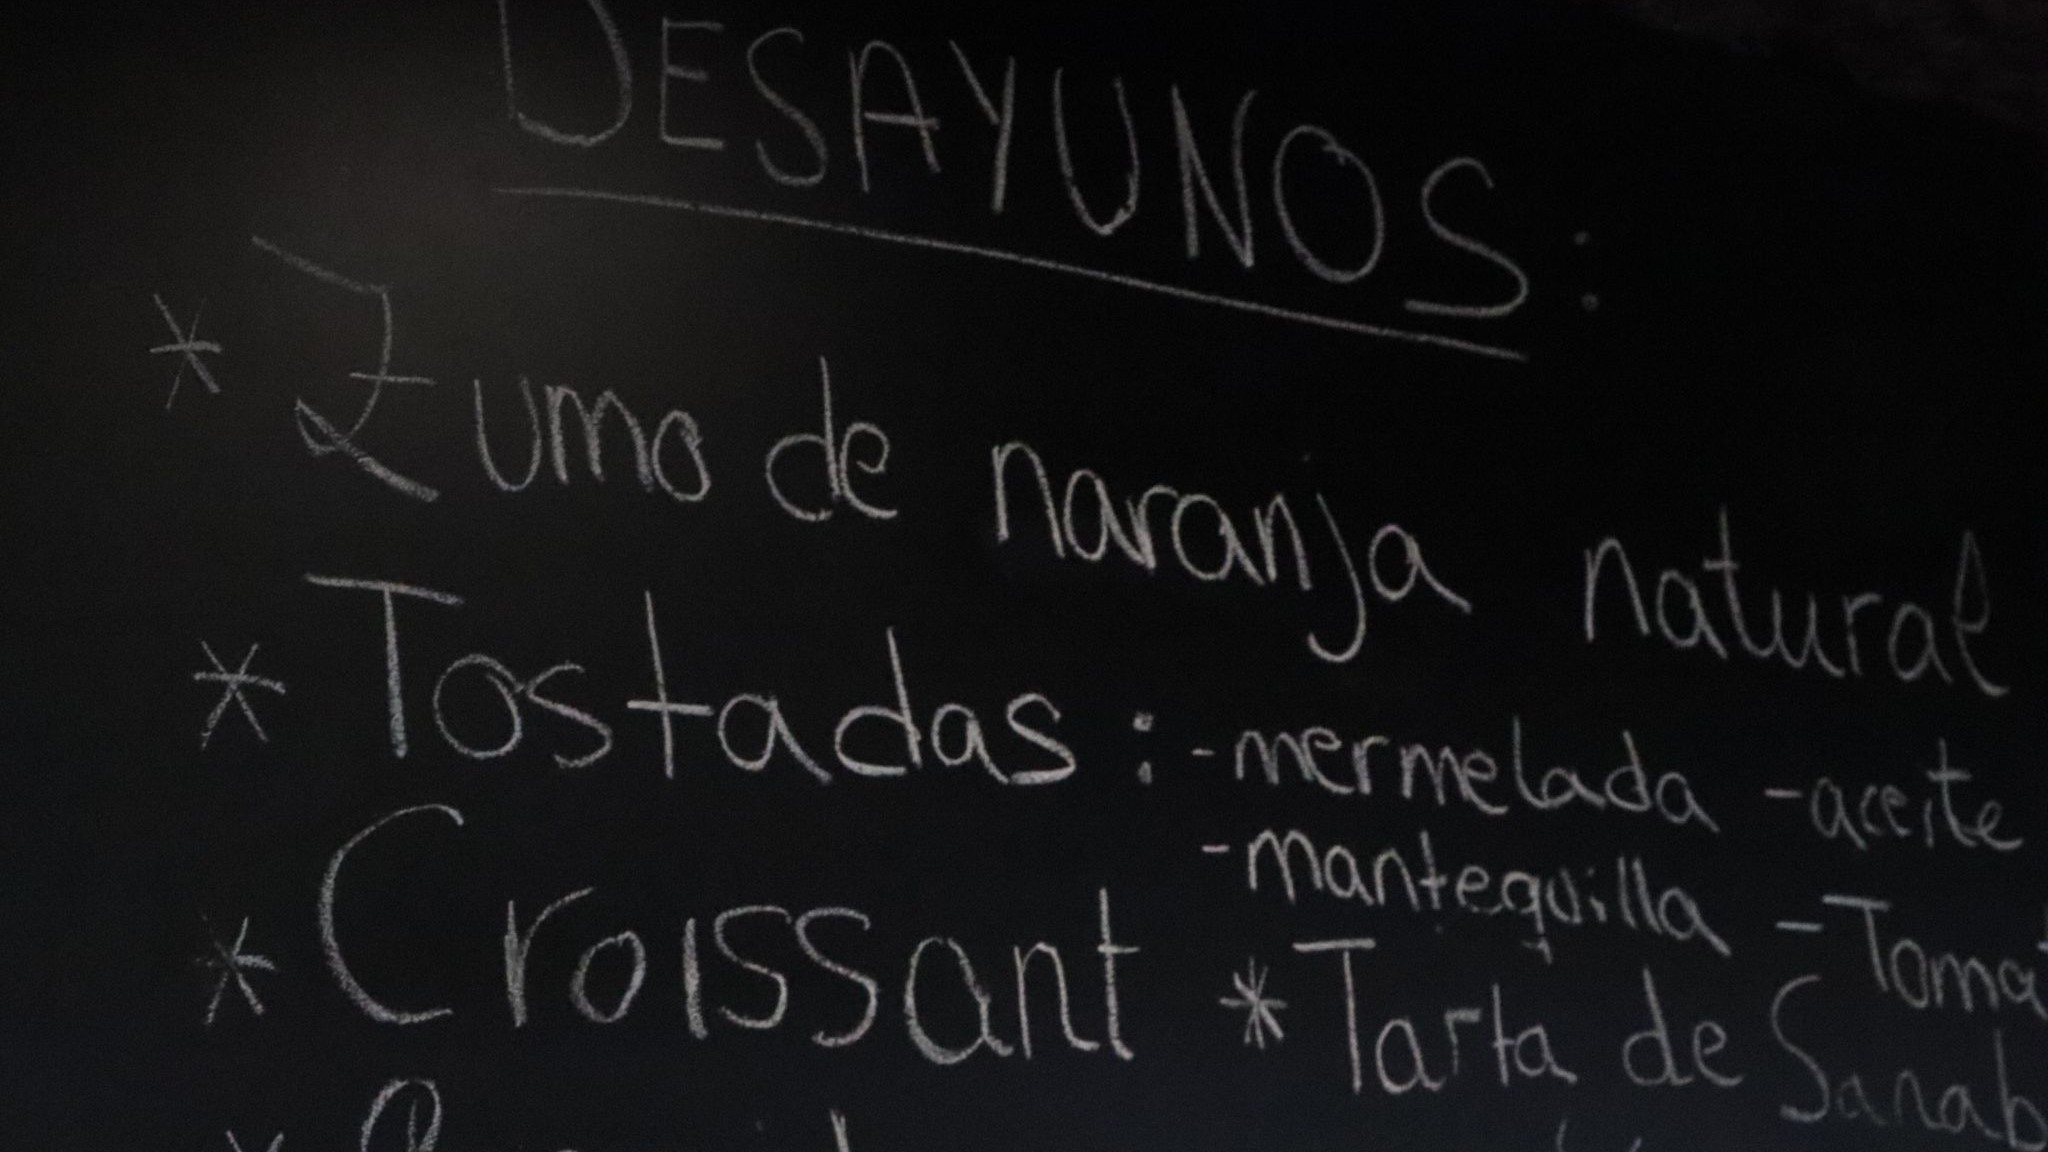 DESAYUNOS:
* Zumo de naranja natural
* Tostadas: -mermelada -aceite
-mantequilla -Toma
* Croissant * Tarta de Sanab